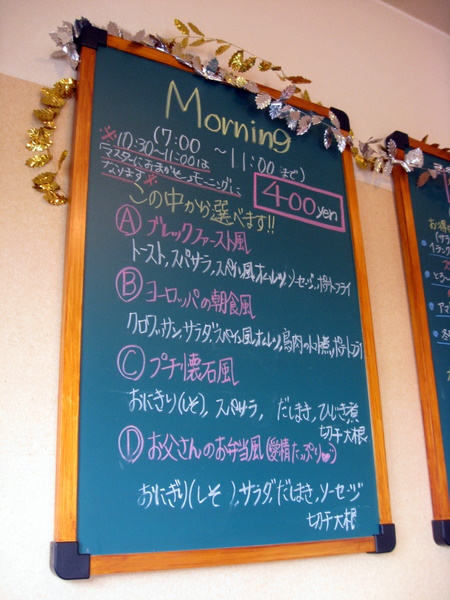 Morning
(7:00 ~11:00まで)
※10:30~11:00は
「マスターにおまかせ」モーニングに
なります※
400yen
この中から選べます!!
Ⓐ ブレックファースト風
トースト,スパサラ,スペイン風オムレツ,ソーセージ,ポテトフライ
Ⓑ ヨーロッパの朝食風
クロワッサン,サラダ,スペイン風オムレツ,鳥肉のトマト煮,ポテトフライ
Ⓒ プチ懐石風
おにぎり(しそ), スパサラ, だしまき, ひじき煮
切干大根
Ⓓ お父さんのお弁当風(愛情たっぷり♥)
おにぎり(しそ),サラダ,だしまき,ソーセージ
切干大根